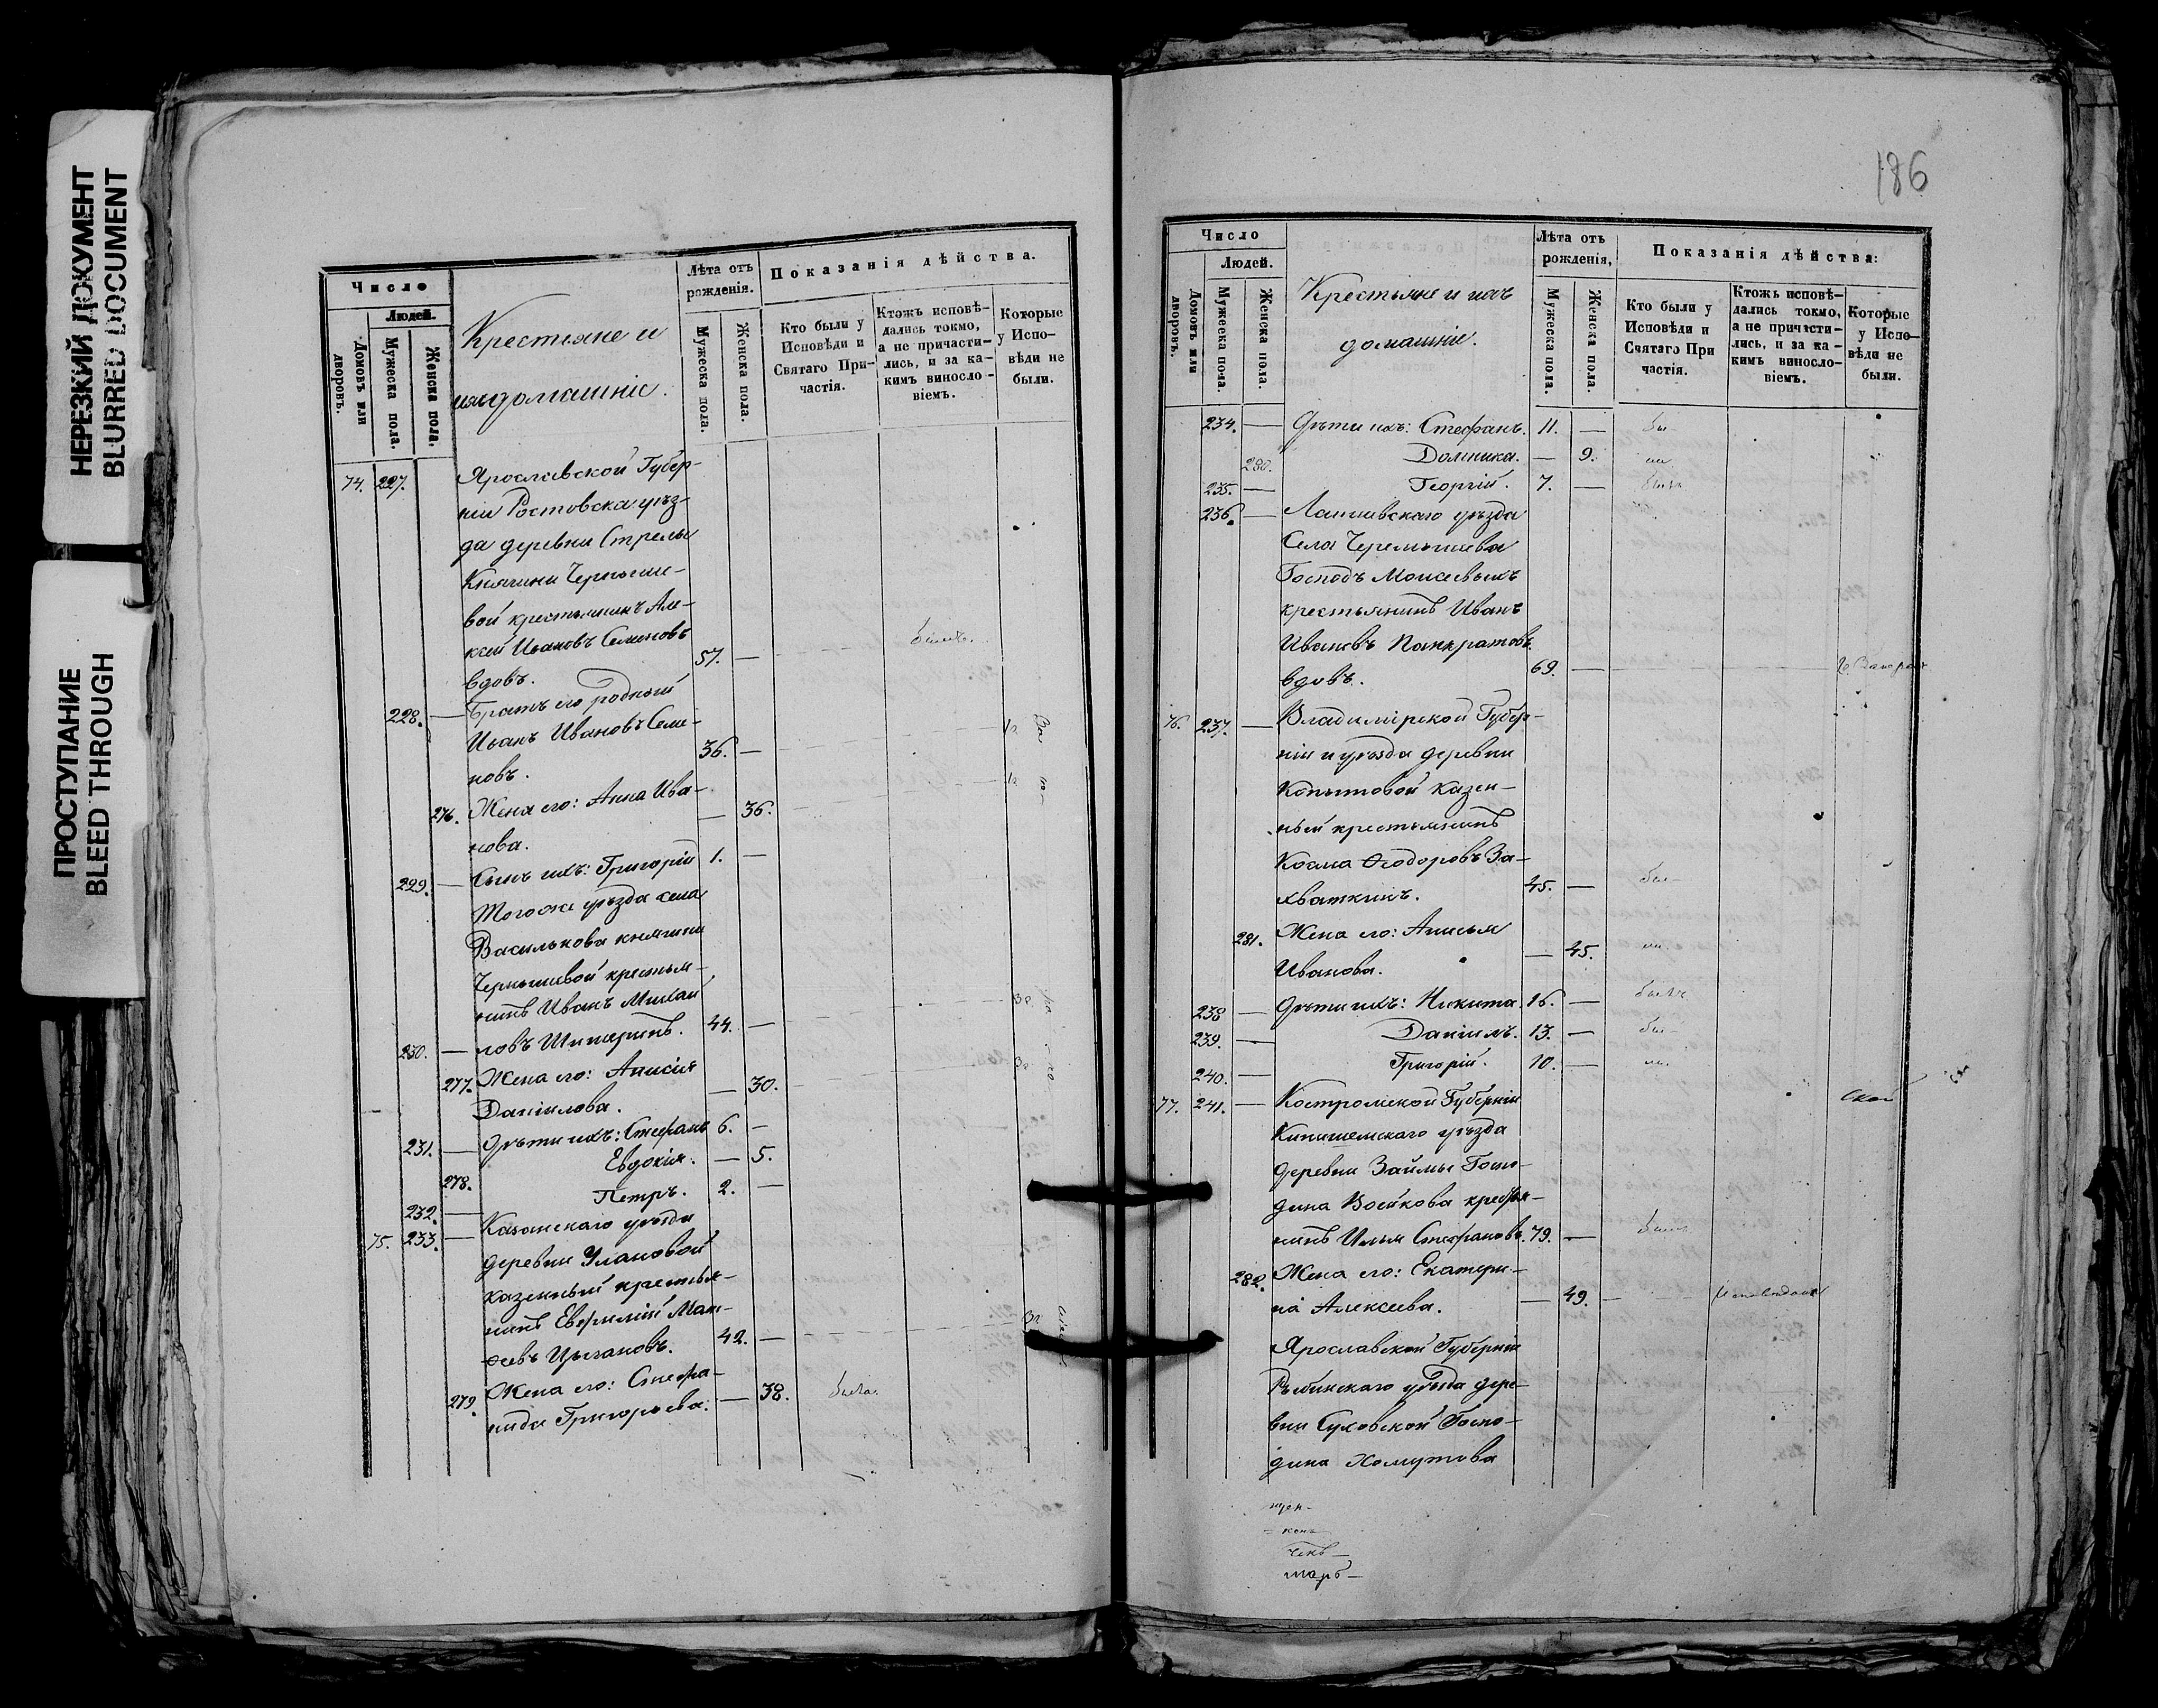 НЕРЕЗКИЙ ДОКУМЕНТ
BLURRED DOCUMENT
ПРОСТУПАНИЕ
BLEED THROUGH
Число
Людей.
Домовъ или дворовъ.
Мужеска пола.
Женска пола.
Крестьяне и
ихъ домашніе.
Лѣта отъ рожденія.
Мужеска пола.
Женска пола.
Показанія дѣйства.
Кто были у Исповѣди и Святаго Причастія.
Ктожъ исповѣ-
дались токмо,
а не причасти-
лись, и за ка-
кимъ винослo-
віемъ.
Которые
у Испо-
вѣди не
были.
74. 227. Ярославской Губер-
ніи Ростовска уѣз-
да деревни Стрелы
Княгини Черныше-
вой крестьянинъ Але-
ксѣй Ивановъ Семеновъ
вдовъ. 57. —
228. — Братъ его родный
Иванъ Ивановъ Семе-
новъ. 36. —
276. Жена его: Анна Ива-
нова. — 36.
229. — Сынъ ихъ: Григорій 1. —
Тогоже уѣзда села
Василькова княгини
Чернышевой крестья-
нинъ Иванъ Михаи
230. — ловъ Шипаринъ. 44. —
277. Жена его: Анисія
Даніилова. — 30.
231. — Дѣти ихъ: Стефанъ 6. —
278. Евдокія. — 5.
232. — Петръ. 2. —
75. 233. — Казанскаго уѣзда
деревни Улановой
казенный крестья-
нинъ Евфимій Мат-
ѳеевъ Цыгановъ. 42. —
279. Жена его: Стефа-
нида Григорьева. — 38. была.
186
Число
Людей.
Домовъ или дворовъ.
Мужеска пола.
Женска пола.
Крестьяне и ихъ
домашніе.
Лѣта отъ рожденія,
Мужеска пола.
Женска пола.
Показанія дѣйства:
Кто были у
Исповѣди и
Святаго При
частія.
Ктожъ исповѣ-
дались токмо,
а не причасти-
лись, и за ка-
кимъ винослo-
віемъ.
Которые
у Испо-
вѣди не
были.
234. — Дѣти ихъ: Стефанъ. 11. — бы-
280. Домника. — 9. ли
235. — Георгій. 7. —
236. — Лаишевскаго уѣзда
Села Черемышева
Господъ Моисеевыхъ
крестьянинъ Иванъ
Ивановъ Панкратовъ
вдовъ. 69. —
76. 237. — Владимірской Губер-
ніи и уѣзда деревни
Копытовой казен-
ный крестьянинъ
Косма Ѳеодоровъ За-
хваткинъ. 45. — бы-
281. Жена его: Анисья
Иванова. — 45. ли.
238 — Дѣти ихъ: Никита. 16. — былъ
239. — Даніилъ. 13. — бы-
240. — Григорій. 10. — ли.
77. 241. — Костромской Губерніи
Кинешемскаго уѣзда
деревни Займы Госпо-
дина Воейкова крестья-
нинъ Илья Стефановъ. 79. — былъ
282. Жена его: Екатери-
на Алексеева. — 49.
Ярославской Губерніи
Рыбинскаго уѣзда дере-
вни Суховской Госпо-
дина Хомутова